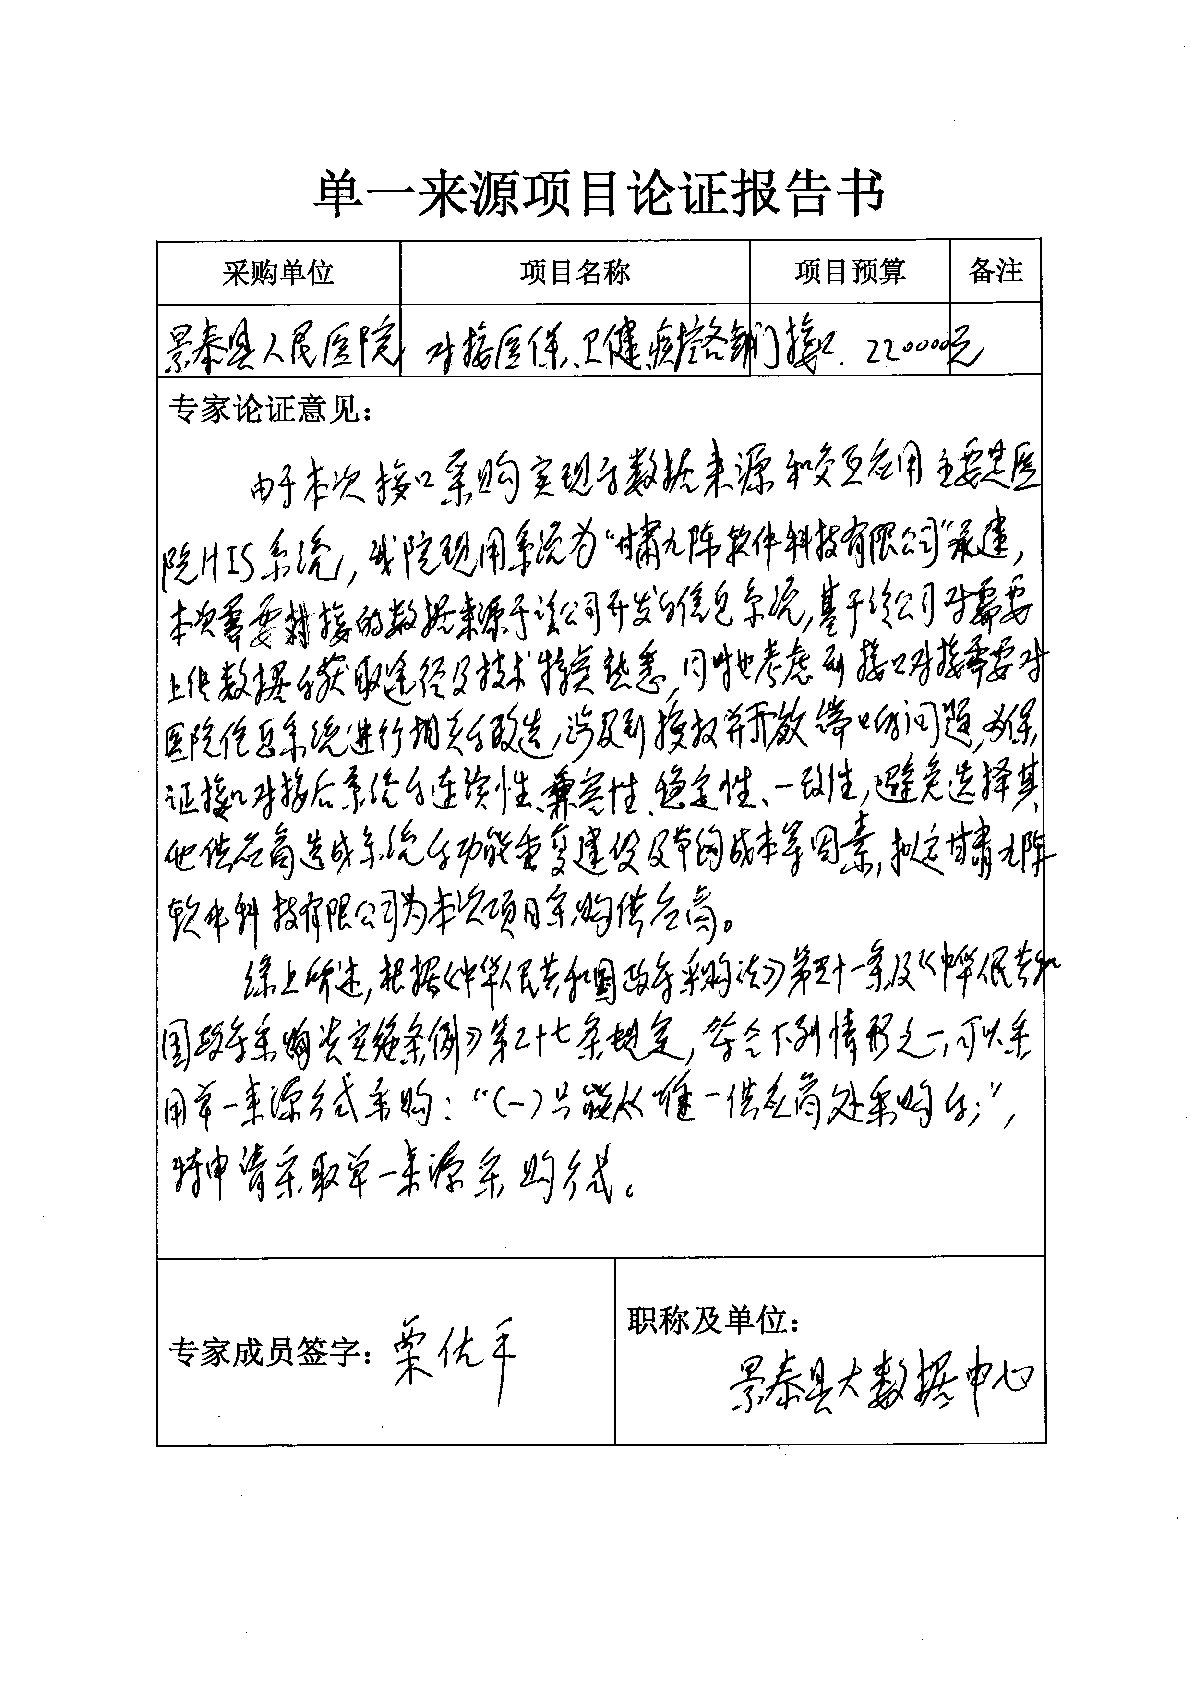 单一来源项目论证报告书
采购单位 项目名称 项目预算 备注
景泰县人民医院 对接医保、卫健、疾控各部门接口 220000元
专家论证意见：
由于本次接口采购实现的数据来源和交互应用主要是医
院HIS系统，我院现用系统为“甘肃九阵软件科技有限公司”承建，
本次需要对接的数据来源于该公司开发的信息系统，基于该公司对需要
上传数据的获取途径及技术特点熟悉，同时也考虑到接口对接需要对
医院信息系统进行相关的改造，涉及到授权并开放端口的问题，为保
证接口对接后系统的连续性、兼容性、稳定性、一致性，避免选择其
他供应商造成系统的功能重复建设及节约成本等因素，拟定甘肃九阵
软件科技有限公司为本次项目采购供应商。
综上所述，根据《中华人民共和国政府采购法》第三十一条及《中华人民共和
国政府采购法实施条例》第二十七条规定，符合下列情形之一，可以采
用单一来源方式采购：“（一）只能从唯一供应商处采购的；”，
特申请采取单一来源采购方式。
专家成员签字： 栗
职称及单位：
景泰县大数据中心